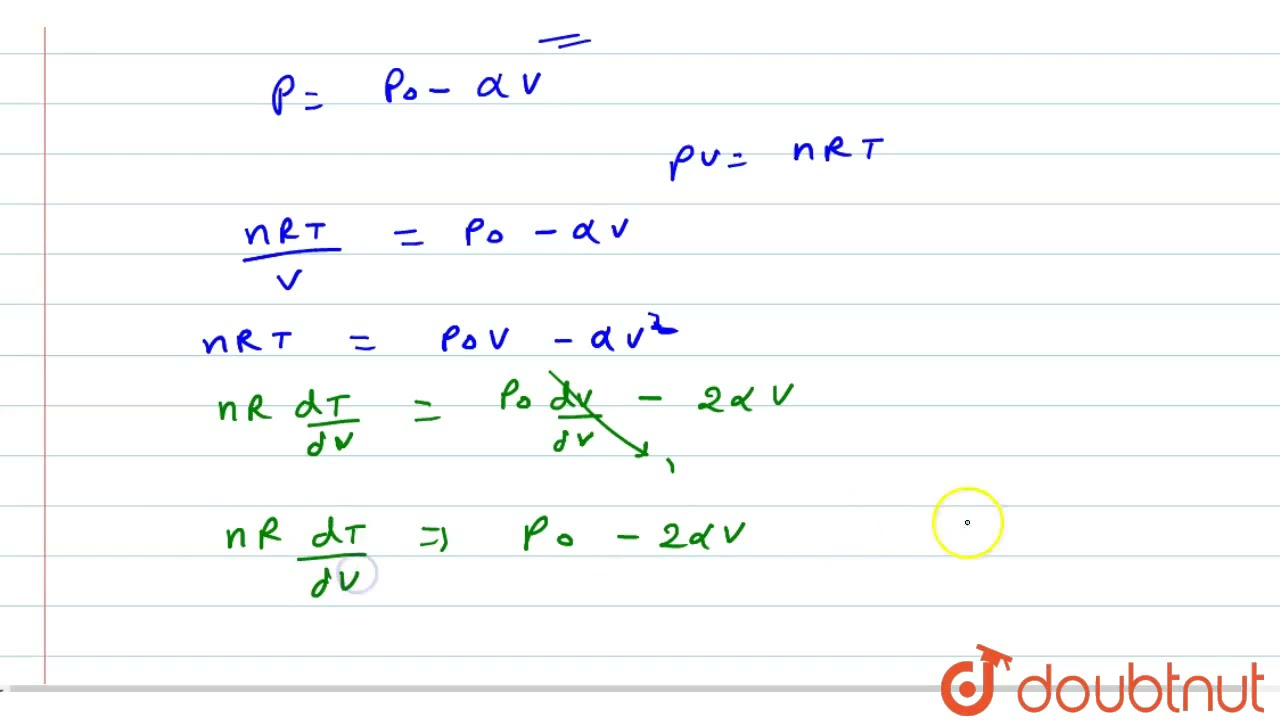 P = P₀ - αV
PV = nRT
nRT/V = P₀ - αV
nRT = P₀V - αV²
nR dT/dV = P₀ dV/dV - 2αV
1
nR dT/dV ⇒ P₀ - 2αV
doubtnut